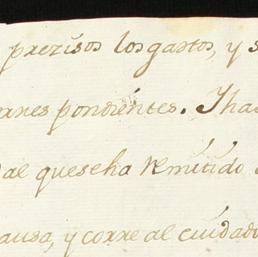 prezisos los gastos, y s
rres pondientes. Y ha
al que se ha remitido
ausa, y corre al cuidad